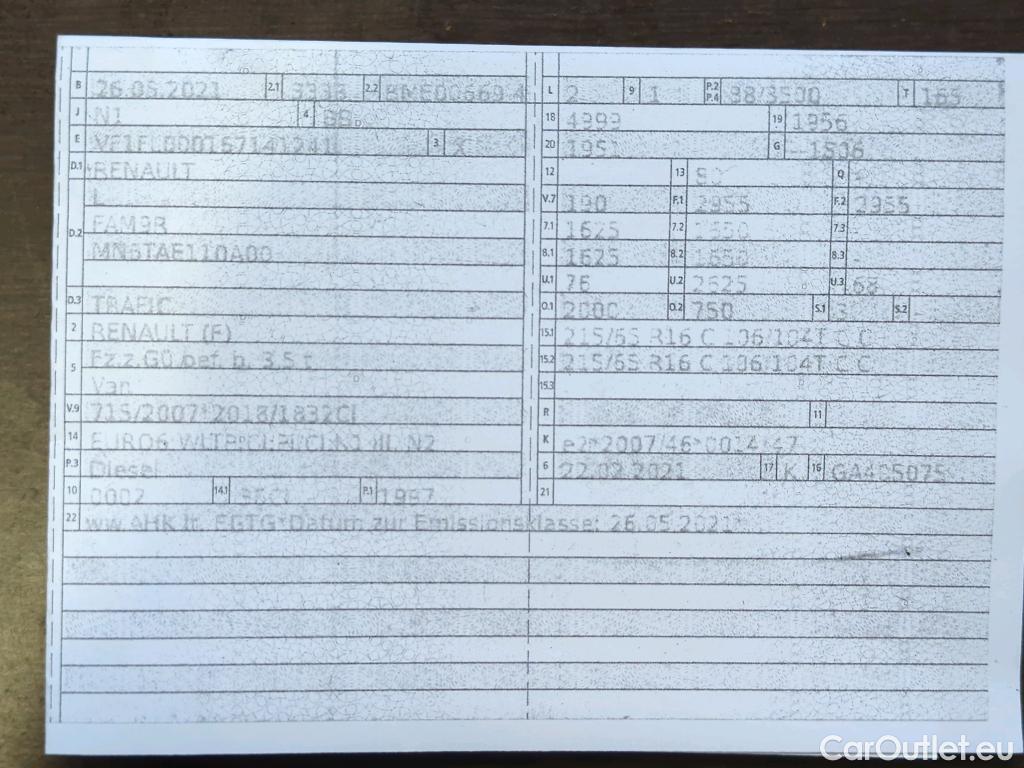 B 26.05.2021 2.1 3333 2.2 BME00669 4
J N1 4 BB
E VF1FL000167141241 3 X
D.1 RENAULT
L
D.2 FAM9R
MN6TAE110A00
D.3 TRAFIC
2 RENAULT (F)
5 Fz.z.Gü.bef. b. 3,5 t
Van
V.9 715/2007*2018/1832CI
14 EURO6 WLTP;CI;PI;CI:N1 III, N2
P.3 Diesel
10 0002 14.1 36CI P.1 1997
L 2 9 1 P.2 P.4 88/3500 T 165
18 4999 19 1956
20 1951 G 1506
12 13 Q -
V.7 190 F.1 2955 F.2 2955
7.1 1625 7.2 7.3 -
8.1 1625 8.2 1650 8.3 -
U.1 76 U.2 2625 U.3 68
O.1 2000 O.2 750 S.1 3 S.2 -
15.1 215/65 R16 C 106/104T C C
15.2 215/65 R16 C 106/104T C C
15.3
R 11
K e2*2007/46*0014*47
6 22.02.2021 17 K 16 GA405075
21
22 ww.AHK lt. EGTG*Datum zur Emissionsklasse: 26.05.2021*
CarOutlet.eu